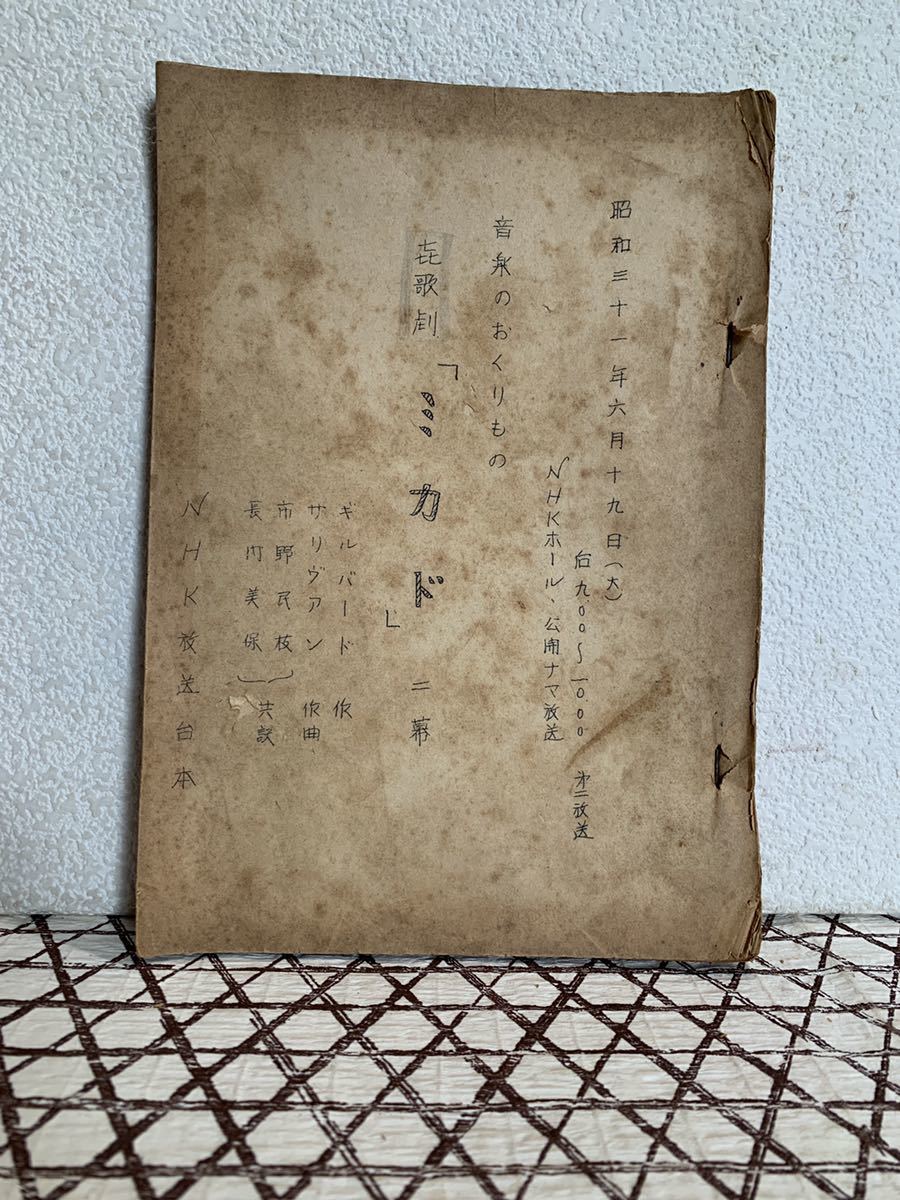 昭和三十一年六月十九日(火)
后九.〇〇〜一〇.〇〇 第二放送
NHKホール、公開ナマ放送
音楽のおくりもの
㐂歌劇「ミカド」二幕
ギルバード 作
サリヴアン 作曲
市野民枝
長内美保 共訳
NHK放送台本